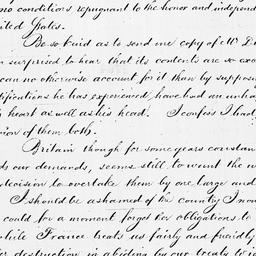 no conditions repugnant to the honor and independ
ited States.
Be so kind as to send me copy of Mr D
surprised to hear that its contents are so exce
can no otherwise account for it than by suppos
tifications he has experienced, have had an unha
heart as well as his head. I confess I had
nion of them both.
Britain though for some years constan
ds our demands, seems still to want the w
decision to overtake them by one large and
I should be ashamed of the country I now
could for a moment forget her obligations to
while France treats us fairly and friendly
destruction in abiding by our treaty wi